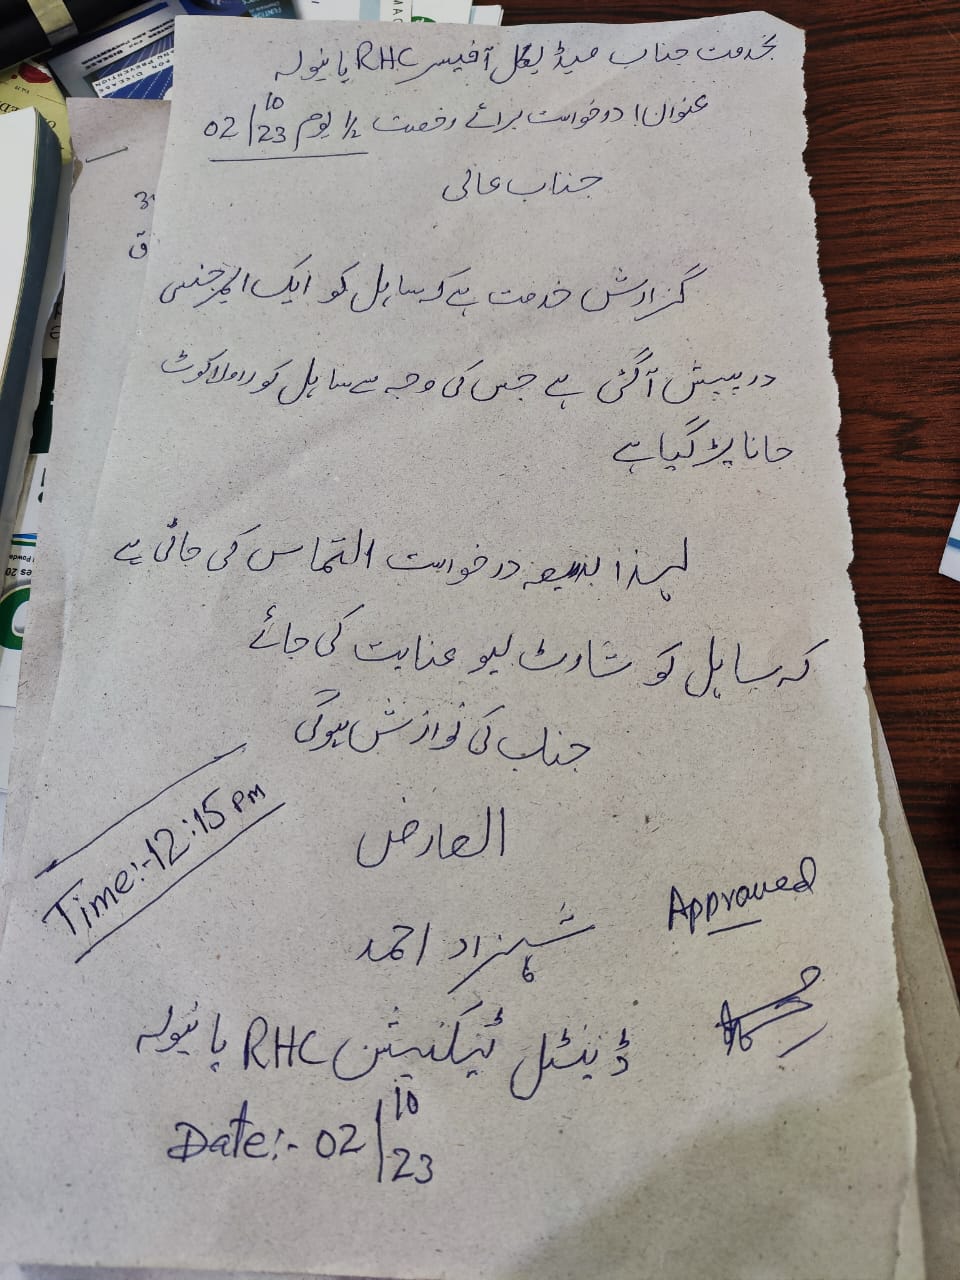 بخدمت جناب میڈیکل آفیسر RHC پانیولہ
عنوان: درخواست برائے رخصت ½ یوم 02/10/23
جناب عالی
گزارش خدمت ہے کہ سایل کو ایک ایمرجنسی
درپیش آگئی ہے جس کی وجہ سے سایل کو راولاکوٹ
جانا پڑ گیا ہے
لہذا بذریعہ درخواست التماس کی جاتی ہے
کہ سایل کو شارٹ لیو عنایت کی جائے
جناب کی نوازش ہوگی
العارض
Time:-12:15 PM
شہزاد احمد
Approved
ڈینٹل ٹیکنیشن RHC پانیولہ
Date:- 02/10/23